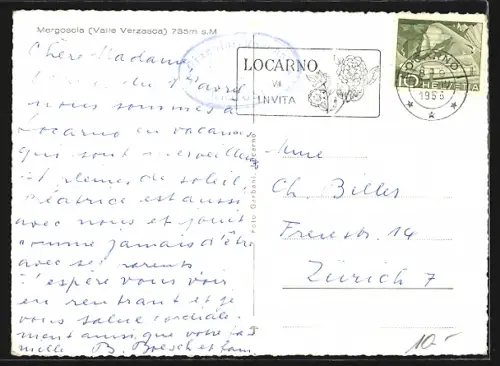 Mergoscia (Valle Verzasca) 735m s.M
Chère Madame
du d'avril
nous sommes à
Locarno en vacances
qui sont merveilleuses
et pleines du soleil.
Béatrice est aussi
avec nous et jouit
comme jamais d'être
avec ses parents
J'espère vous voir
en rentrant et je
vous salue cordiale-
ment ainsi que votre fa-
mille B. Boesch et fam.
LOCARNO
VI
INVITA
LOCARNO
1958
10
HELVETIA
Foto Garbani, Locarno
Mme
Ch. Biller
Freiestr. 14
Zürich 7
10.-